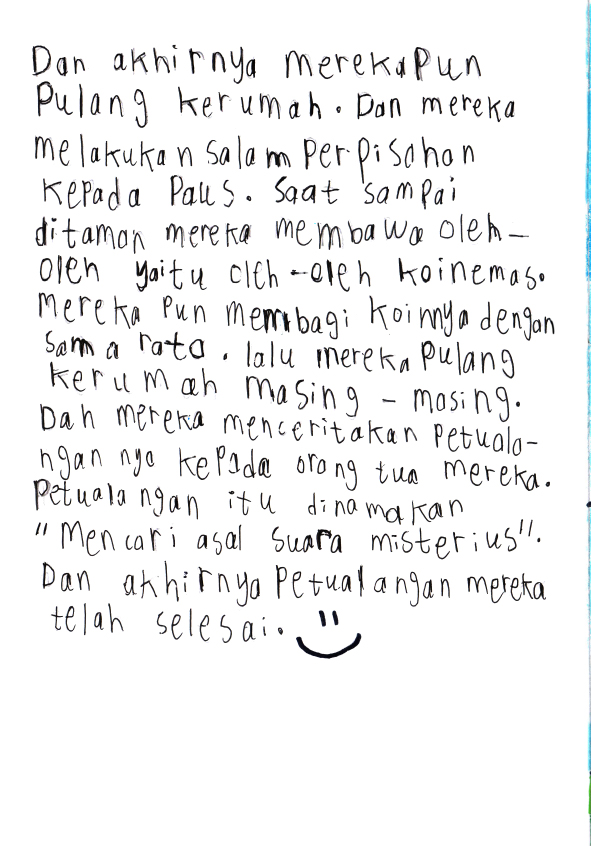 Dan akhirnya mereka Pun
Pulang kerumah. Dan mereka
melakukan salam perpisahan
kepada Paus. Saat sampai
ditaman mereka membawa oleh-
oleh yaitu oleh-oleh koin emas.
mereka pun membagi koinnya dengan
sama rata. lalu mereka Pulang
kerumah masing - masing.
Dan mereka menceritakan Petuala-
ngan nya kepada orang tua mereka.
Petualangan itu dinamakan
"Mencari asal suara misterius".
Dan akhirnya Petualangan mereka
telah selesai.